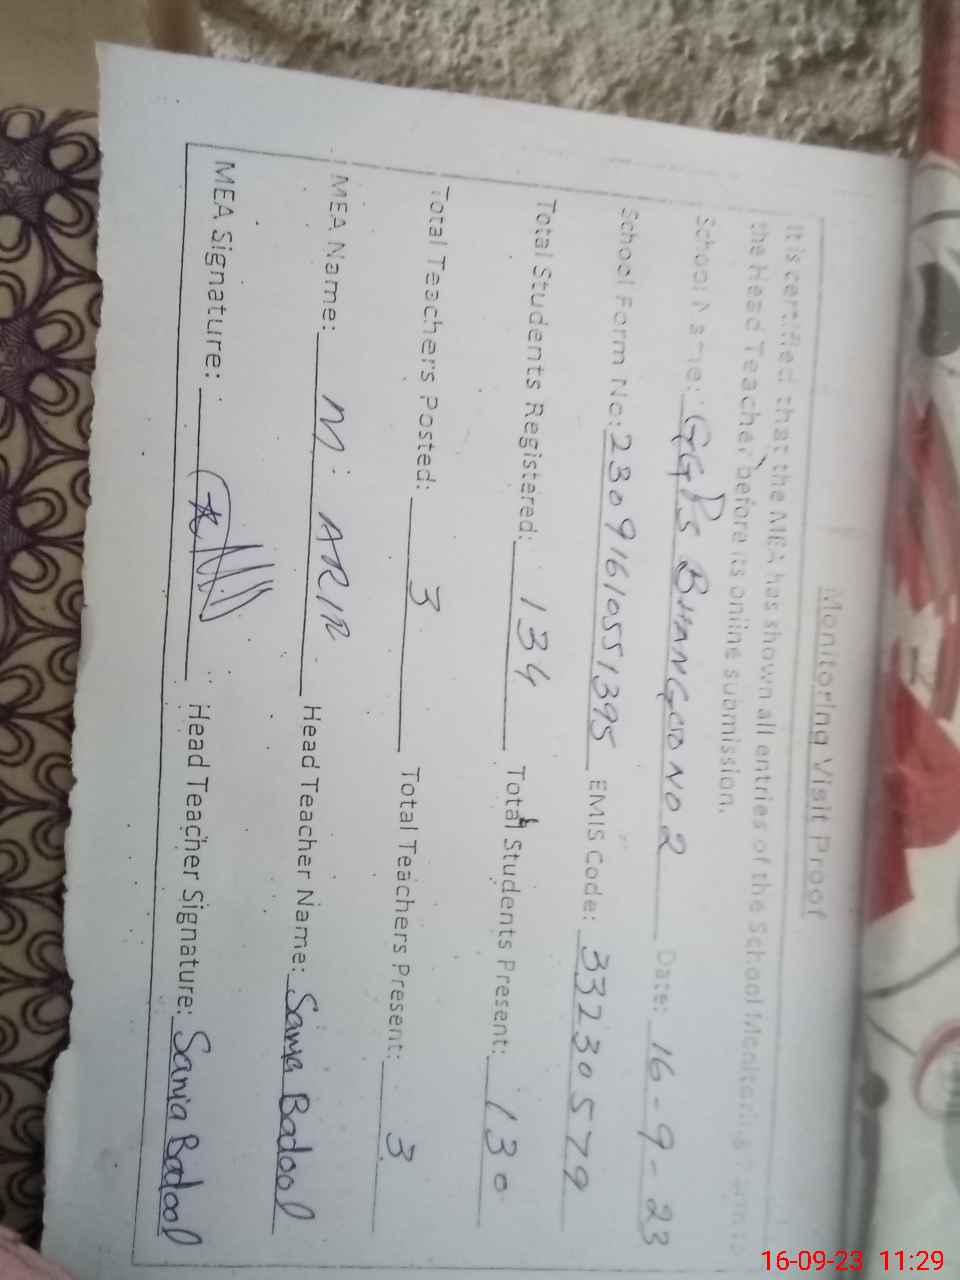 Monitoring Visit Proof
It is certified that the MEA has shown all entries of the School Monitoring Form to
the Head Teacher before its online submission.
School Name: GGPS BHANGOO NO 2 Date: 16-9-23
School Form No: 23091610551395 EMIS Code: 33230579
Total Students Registered: 134 Total Students Present: 130
Total Teachers Posted: 3 Total Teachers Present: 3
MEA Name: M. Head Teacher Name: Sania Badool
MEA Signature: Head Teacher Signature: Sania Badool
16-09-23 11:29